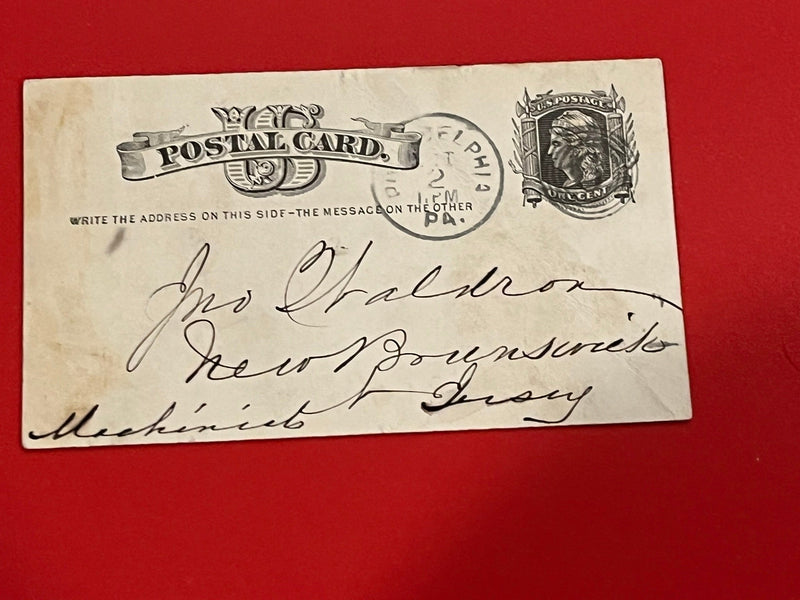 US
POSTAL CARD.
WRITE THE ADDRESS ON THIS SIDE-THE MESSAGE ON THE OTHER
PHILADELPHIA
2
1 PM
PA.
U.S. POSTAGE
ONE CENT
Jno Waldron
New Brunswick
N Jersey
Machinist